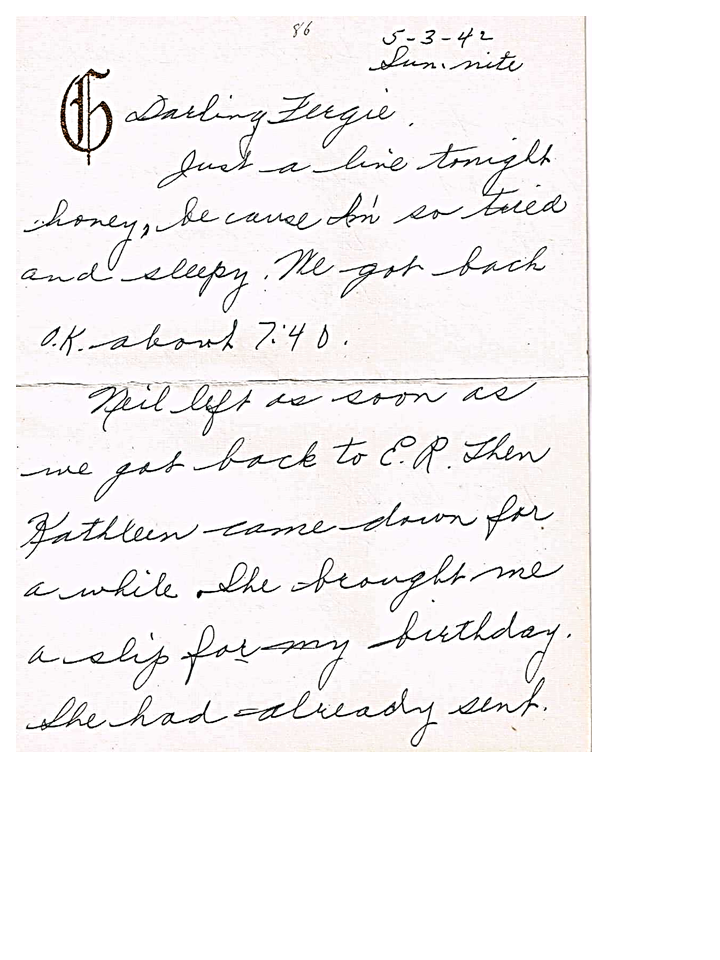 86
5-3-42
Sun. nite
G
Darling Fergie,
Just a line tonight
honey, because I'm so tired
and sleepy. We got back
O.K. about 7:40.
Neil left as soon as
we got back to E.R. Then
Kathleen came down for
a while. She brought me
a slip for my birthday.
She had already sent